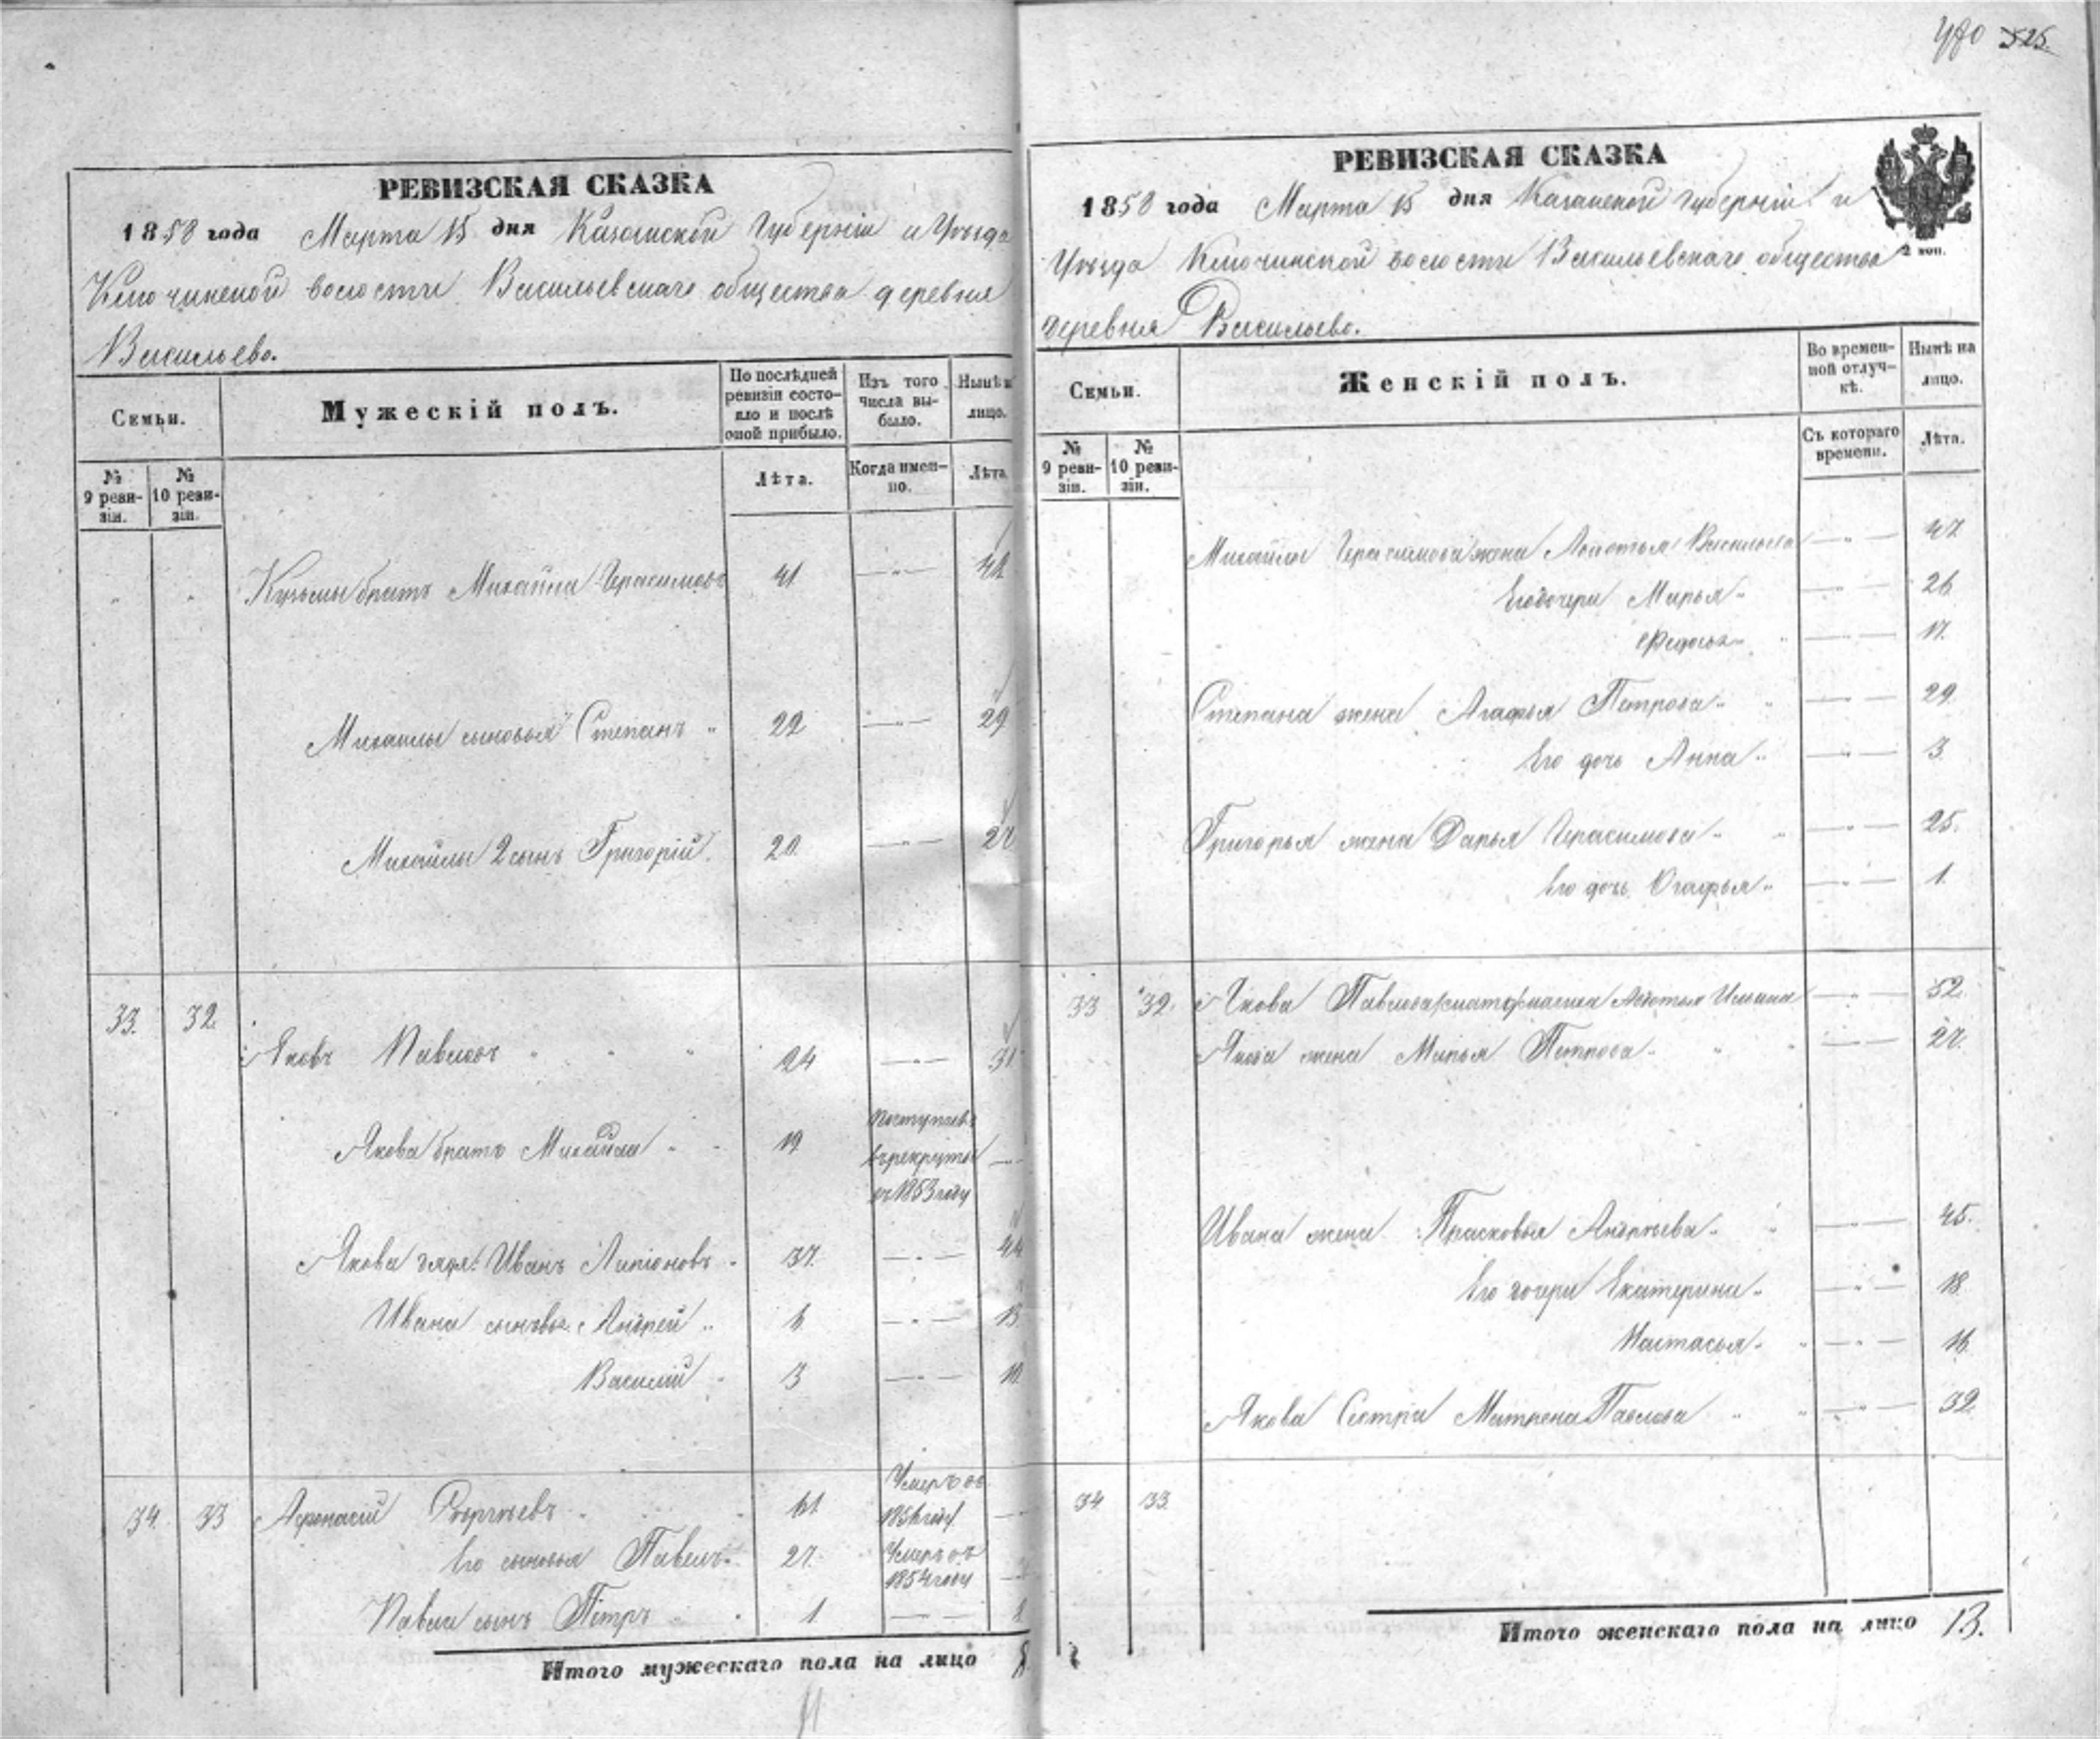 480 525.
РЕВИЗСКАЯ СКАЗКА
1858 года Марта 15 дня Казанской Губерніи и Уѣзда
Ключинской волости Васильевскаго общества деревня
Васильево.
Семьи.
Мужескій полъ.
По послѣдней ревизіи состояло и послѣ оной прибыло.
Изъ того числа выбыло.
Нынѣ н
лицо.
№ 9 ревизіи.
№ 10 ревизіи.
Лѣта.
Когда именно.
Лѣта.
" " Кузьмы братъ Михайла Герасимовъ 41 — " —
Михаилы сыновья Степанъ " 22 — " — 29
Михайлы 2 сынъ Григорій. 20. — " — 27
33. 32. Яковъ Павловъ " " " 24 — " — 31
Якова братъ Михайла " " 19 поступилъ въ рекруты въ 1853 году —
Якова дядя Иванъ 37. — " — 44
Ивана сыновья Андрей " 6 — " — 13
Василій " 3 — " — 10.
34. 33 Афонасій " " 61 Умеръ въ 1856 году —
Его сыновья Павелъ " 27. Умеръ въ 1854 году —
Павла сынъ Петръ " " 1 — " —
Итого мужескаго пола на лицо 8
11
РЕВИЗСКАЯ СКАЗКА
1858 года Марта 15 дня Казанской губерніи и
Уѣзда Ключинской волости Васильевскаго общества
деревня Васильево.
2 коп.
Семьи.
Женскій полъ.
Во временной отлучкѣ.
Нынѣ на лицо.
№ 9 ревизіи.
№ 10 ревизіи.
Съ котораго времени.
Лѣта.
Михайлы Герасимова жена Васильева — " — 47
Его дочери Марья " — " — 26
Федосья " " — " — 17.
Степана жена Агафья Петрова " " — " — 29.
Его дочь Анна " — " — 3
Григорья жена Дарья Герасимова " " — " — 25.
Его дочь Огафья " — " — 1.
33 32. Якова Павлова — " — 52
Якова жена Марья Петрова " " " — " — 27.
Ивана жена Прасковья Андреева " " — " — 45.
Его дочери Екатерина " — " — 18
Настасья " " — " — 16
Якова Сестра Матрена Павлова " " — " — 32.
34 33
Итого женскаго пола на лицо 13.